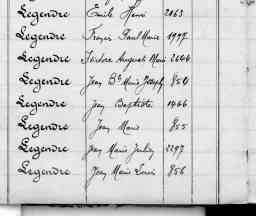 Legendre Emile Henri 2063
Legendre François Paul Marie 1977
Legendre Isidore August Marie 2644
Legendre Jean Bte Marie Joseph 854
Legendre Jean Baptiste 1466
Legendre Jean Marie 855
Legendre Jean Marie Julien 2297
Legendre Jean Marie Louis 856